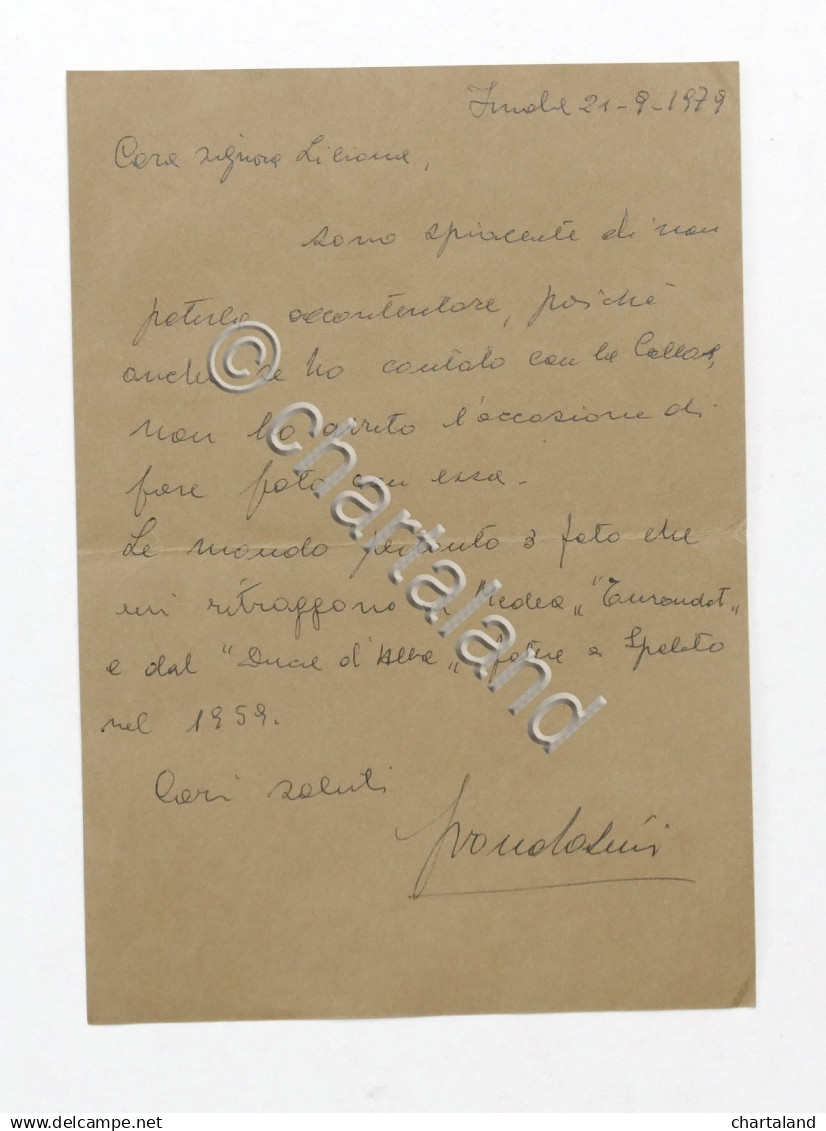 Imola 21-9-1979
Cara signora Liliana,
sono spiacente di non
poterla accontentare, poichè
anche se ho cantato con la Callas,
non ho avuto l'occasione di
fare foto con essa.
Le mando pertanto 3 foto che
mi ritraggono in Medea, "Turandot"
e dal "Duca d'Alba" fatte a Spoleto
nel 1959.
Cari saluti
© chartaland
delcampe.net
chartaland